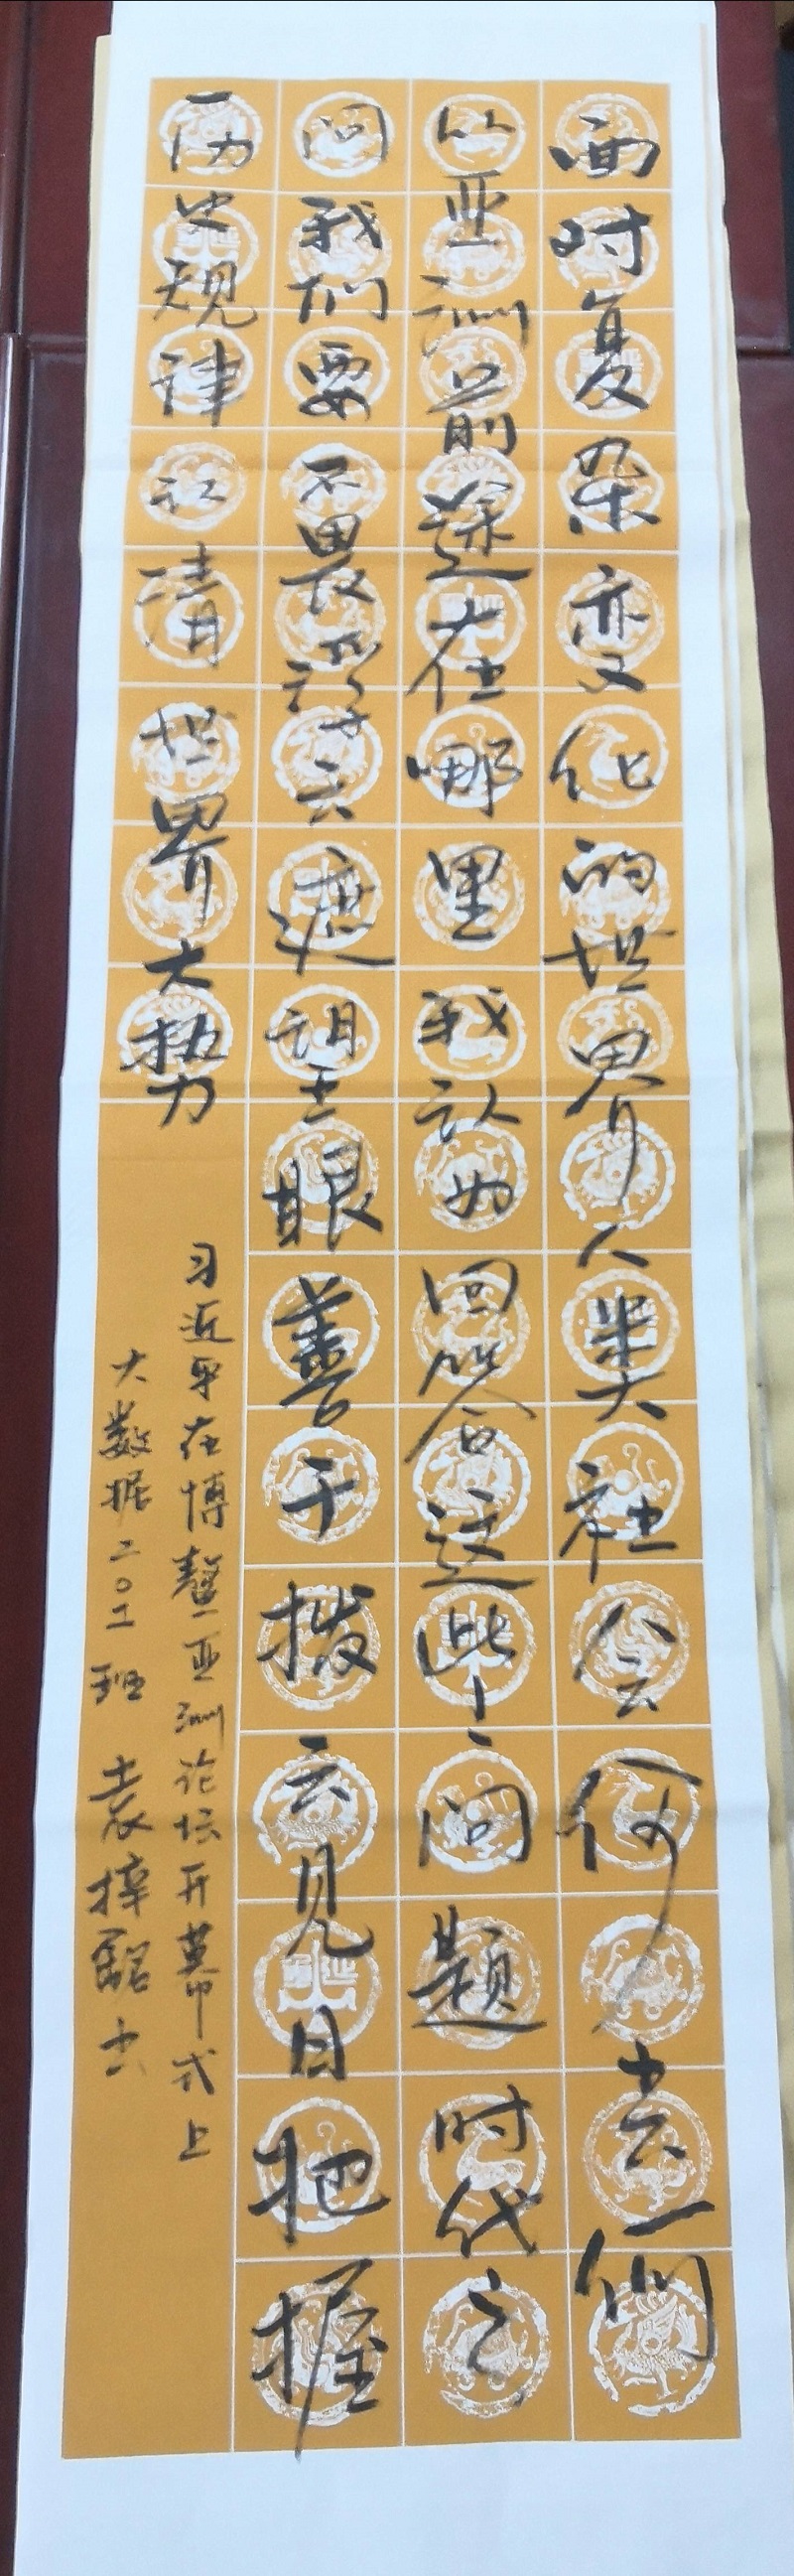 面对复杂变化的世界人类社会何去们
亚洲前途在哪里我认为回答这些问题时代之
问我们要不畏浮云遮望眼善于拨云见日把握
历史规律认清世界大势
习近平在博鳌亚洲论坛开幕式上
大数据二〇班 袁梓书